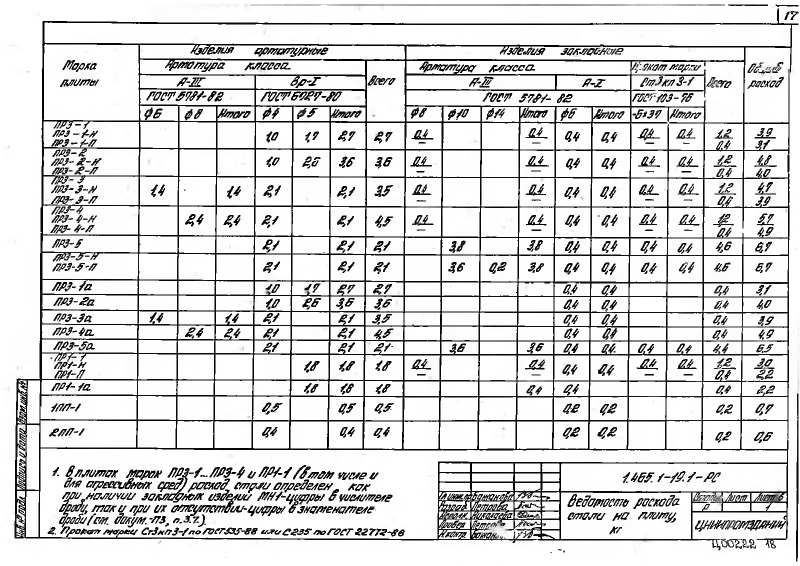 17
Марка плиты
Изделия арматурные
Изделия закладные
Общий расход
Арматура класса
Всего
Арматура класса
Прокат марки
Всего
А-III
Вр-I
А-III
А-I
Ст3кп3-1
ГОСТ 5781-82
ГОСТ 6727-80
ГОСТ 5781-82
ГОСТ 103-76
ф6 ф8 Итого ф4 ф5 Итого ф8 ф10 ф14 Итого ф6 Итого -6х37 Итого
ПР3-1
ПР3-1-Н 1,0 1,7 2,7 2,7 0,4/— 0,4/— 0,4 0,4 0,4/— 0,4/— 1,2/0,4 3,9/3,1
ПР3-1-П
ПР3-2
ПР3-2-Н 1,0 2,6 3,6 3,6 0,4/— 0,4/— 0,4 0,4 0,4/— 0,4/— 1,2/0,4 4,8/4,0
ПР3-2-П
ПР3-3
ПР3-3-Н 1,4 1,4 2,1 2,1 3,5 0,4/— 0,4/— 0,4 0,4 0,4/— 0,4/— 1,2/0,4 4,7/3,9
ПР3-3-П
ПР3-4
ПР3-4-Н 2,4 2,4 2,1 2,1 4,5 0,4/— 0,4/— 0,4 0,4 0,4/— 0,4/— 1,2/0,4 5,7/4,9
ПР3-4-П
ПР3-5 2,1 2,1 2,1 3,8 3,8 0,4 0,4 0,4 0,4 4,6 6,7
ПР3-5-Н
ПР3-5-П 2,1 2,1 2,1 3,6 0,2 3,8 0,4 0,4 0,4 0,4 4,6 6,7
ПР3-1а 1,0 1,7 2,7 2,7 0,4 0,4 0,4 3,1
ПР3-2а 1,0 2,6 3,6 3,6 0,4 0,4 0,4 4,0
ПР3-3а 1,4 1,4 2,1 2,1 3,5 0,4 0,4 0,4 3,9
ПР3-4а 2,4 2,4 2,1 2,1 4,5 0,4 0,4 0,4 4,9
ПР3-5а 2,1 2,1 2,1 3,6 3,6 0,4 0,4 0,4 0,4 4,4 6,5
ПР1-1
ПР1-Н 1,8 1,8 1,8 0,4/— 0,4/— 0,4 0,4 0,4/— 0,4/— 1,2/0,4 3,0/2,2
ПР1-П
ПР1-1а 1,8 1,8 1,8 0,4 0,4 0,4 2,2
1ПП-1 0,5 0,5 0,5 0,2 0,2 0,2 0,7
2ПП-1 0,4 0,4 0,4 0,2 0,2 0,2 0,6
1. В плитах марок ПР3-1...ПР3-4 и ПР1-1 (в том числе и
для агрессивных сред) расход стали определен, как
при наличии закладных изделий МН1-цифры в числителе
дроби, так и при их отсутствии-цифры в знаменателе
дроби (см. докум.-ПЗ, п.3.7.)
2. Прокат марки Ст3кп3-1 по ГОСТ 535-88 или С235 по ГОСТ 22772-88
1.465.1-19.1-РС
Разраб. Петрова
Н.контр. Бажанова
Ведомость расхода
стали на плиту,
кг
Стадия Лист Листов
Р 1
ЦНИИПРОМЗДАНИЙ
Ц00222 18